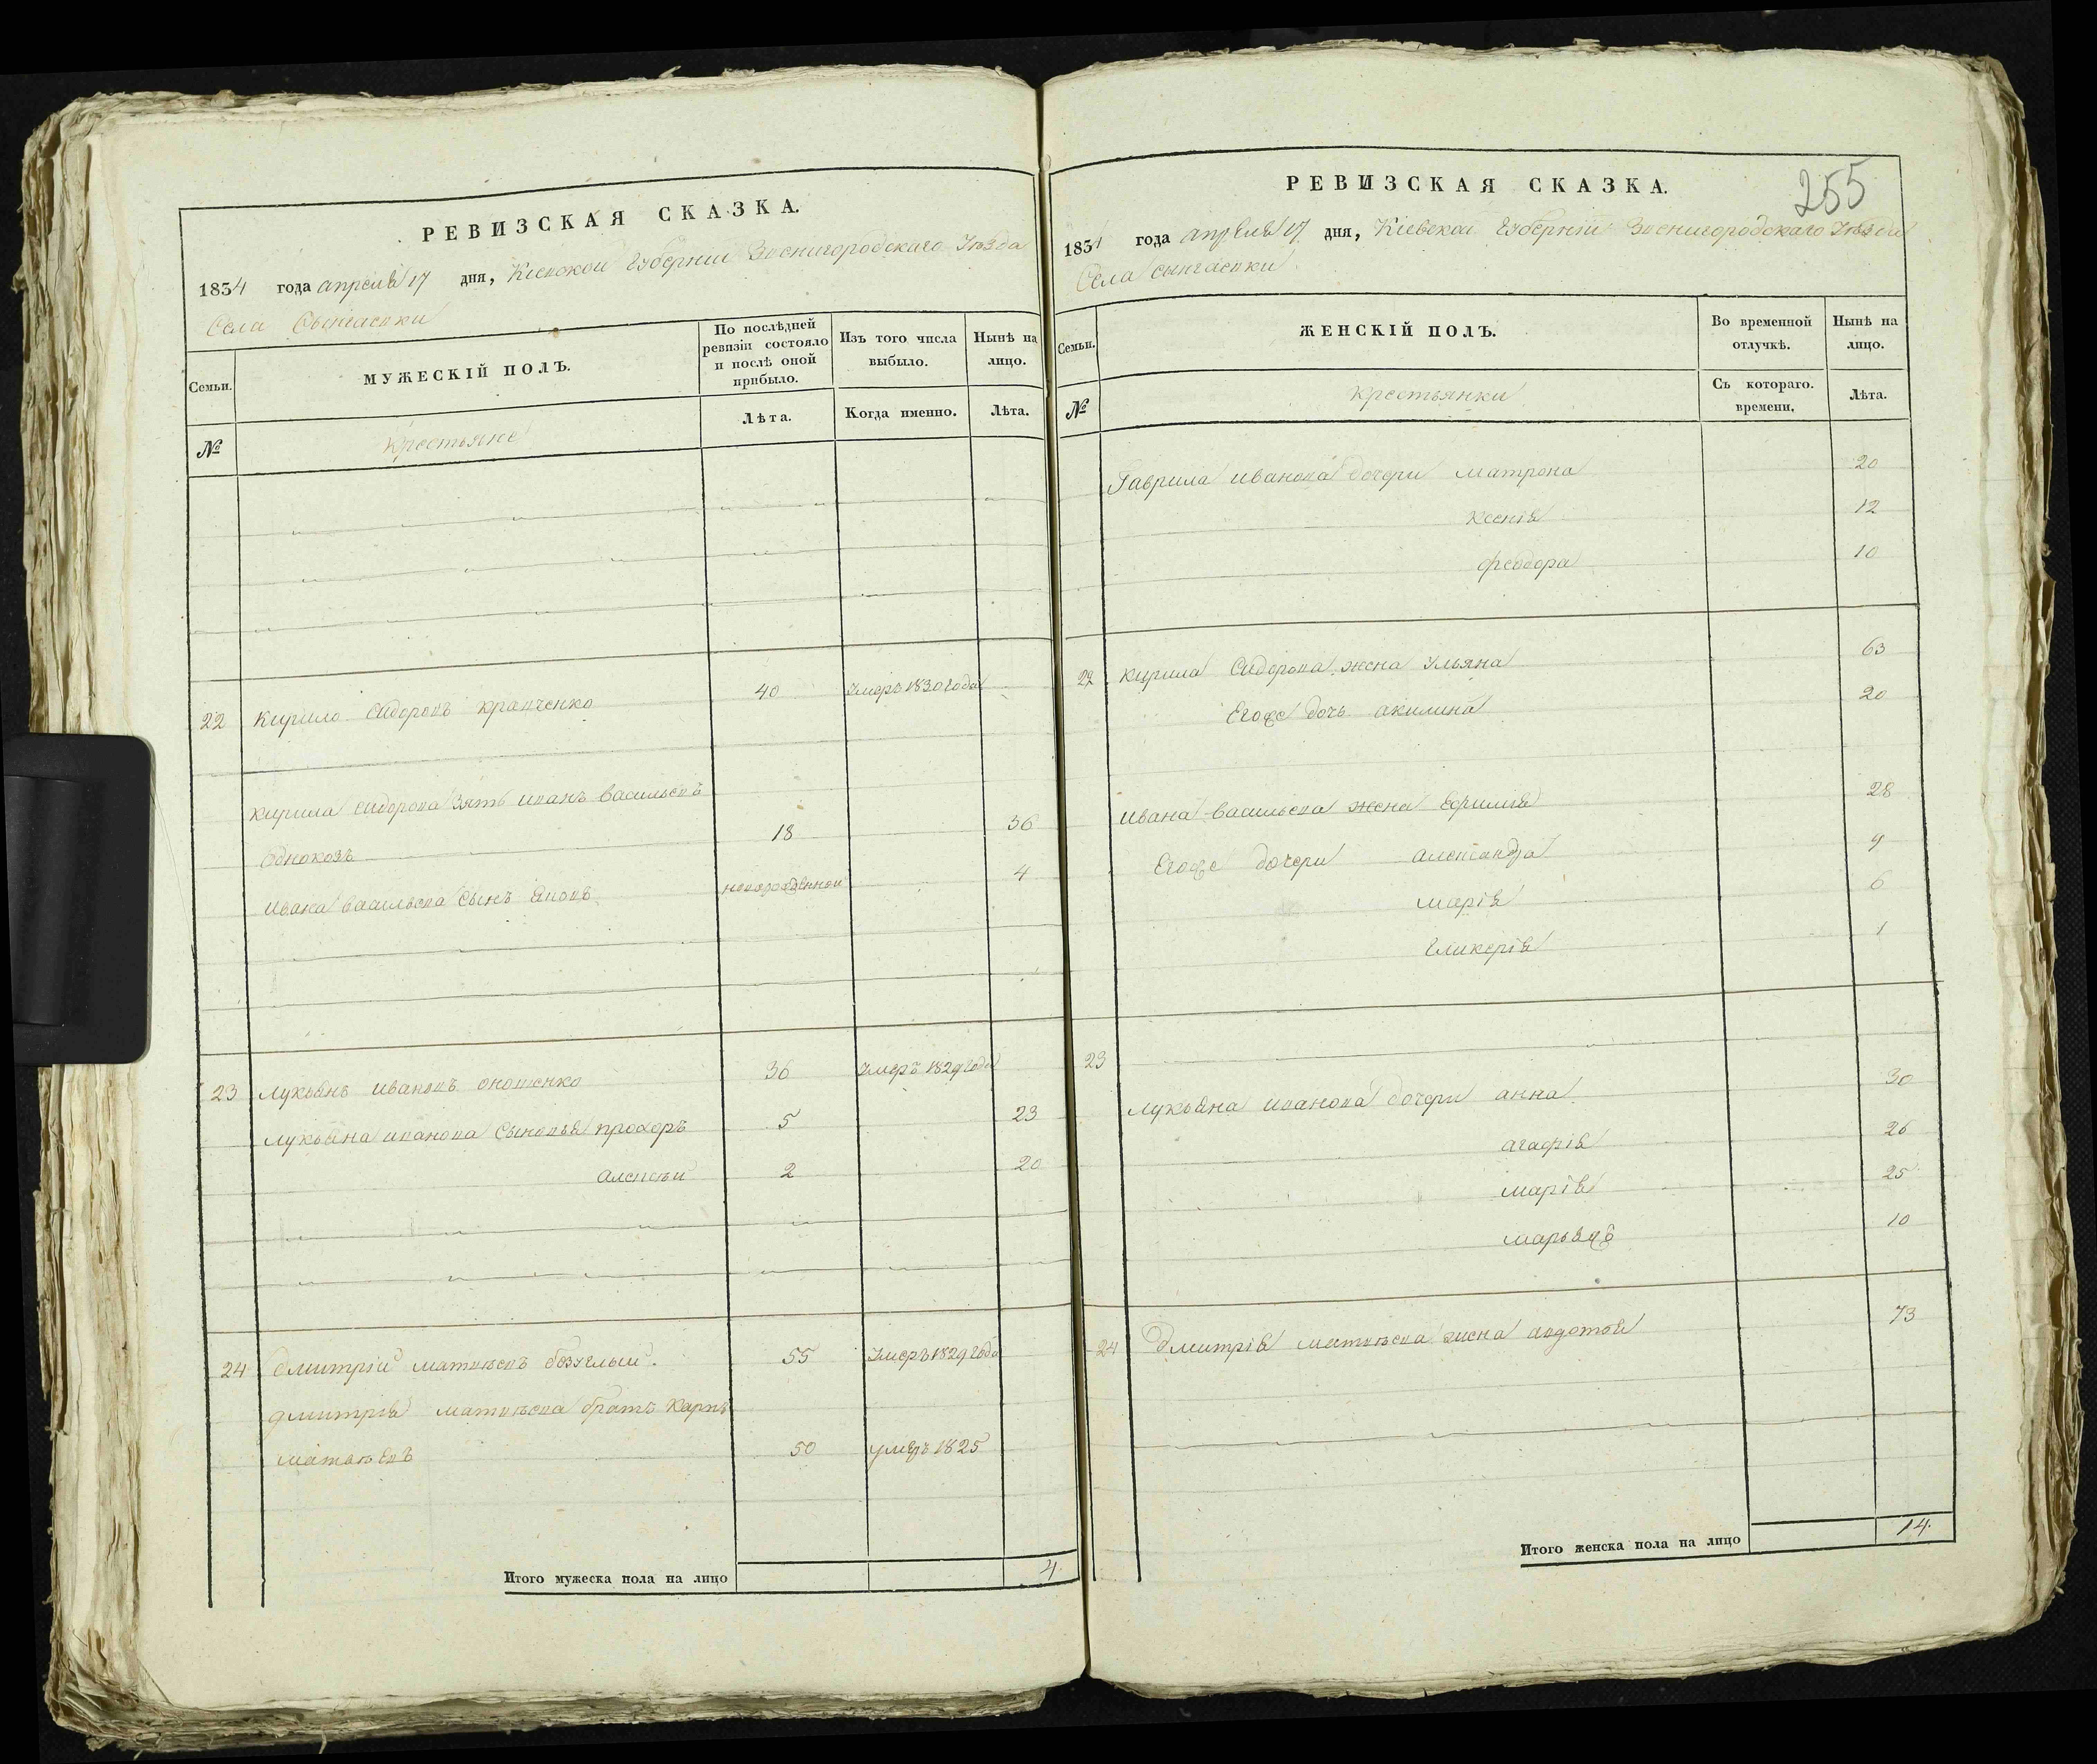 РЕВИЗСКАЯ СКАЗКА.
1834 года апреля 17 дня, Кіевской Губерніи Звенигородскаго Уѣзда
Села
Семьи.
МУЖЕСКІЙ ПОЛЪ.
По послѣдней ревизіи состояло и послѣ оной прибыло.
Изъ того числа выбыло.
Нынѣ на лицо.
№
Крестьяне
Лѣта.
Когда именно.
Лѣта.
22 Кирило Сидоровъ Кравченко 40 умеръ 1830 года
Кирила Сидорова зять иванъ васильевъ
Однокозъ 18 36
Ивана васильева сынъ новорожденной 4
23 Лукьянъ ивановъ 36 умеръ 1829 года
Лукьяна иванова сыновья прохоръ 5 23
алексѣй 2 20
24 Дмитрій матвѣевъ безуглый. 55 Умеръ 1829 года
дмитрія матвѣева братъ Карпъ
матвѣевъ 50 умеръ 1825
Итого мужеска пола на лицо 4.
255
РЕВИЗСКАЯ СКАЗКА.
1834 года апреля 17 дня, Кіевской Губерніи Звенигородскаго Уѣзда
Села
Семьи.
ЖЕНСКІЙ ПОЛЪ.
Во временной отлучкѣ.
Нынѣ на лицо.
№
Крестьянки
Съ котораго. времени.
Лѣта.
Гаврила иванова дочери матрона 20
Ксенія 12
феодора 10
22 Кирила Сидорова жена Ульяна 63
Егоже дочь акилина 20
Ивана васильева жена Ефимія 28
Егоже дочери александра 9
марія 6
Гликерія 1
23
Лукьяна иванова дочери анна 30
агафія 26
марія 25
10
24 Дмитрія матвѣева жена авдотья 73
Итого женска пола на лицо 14.